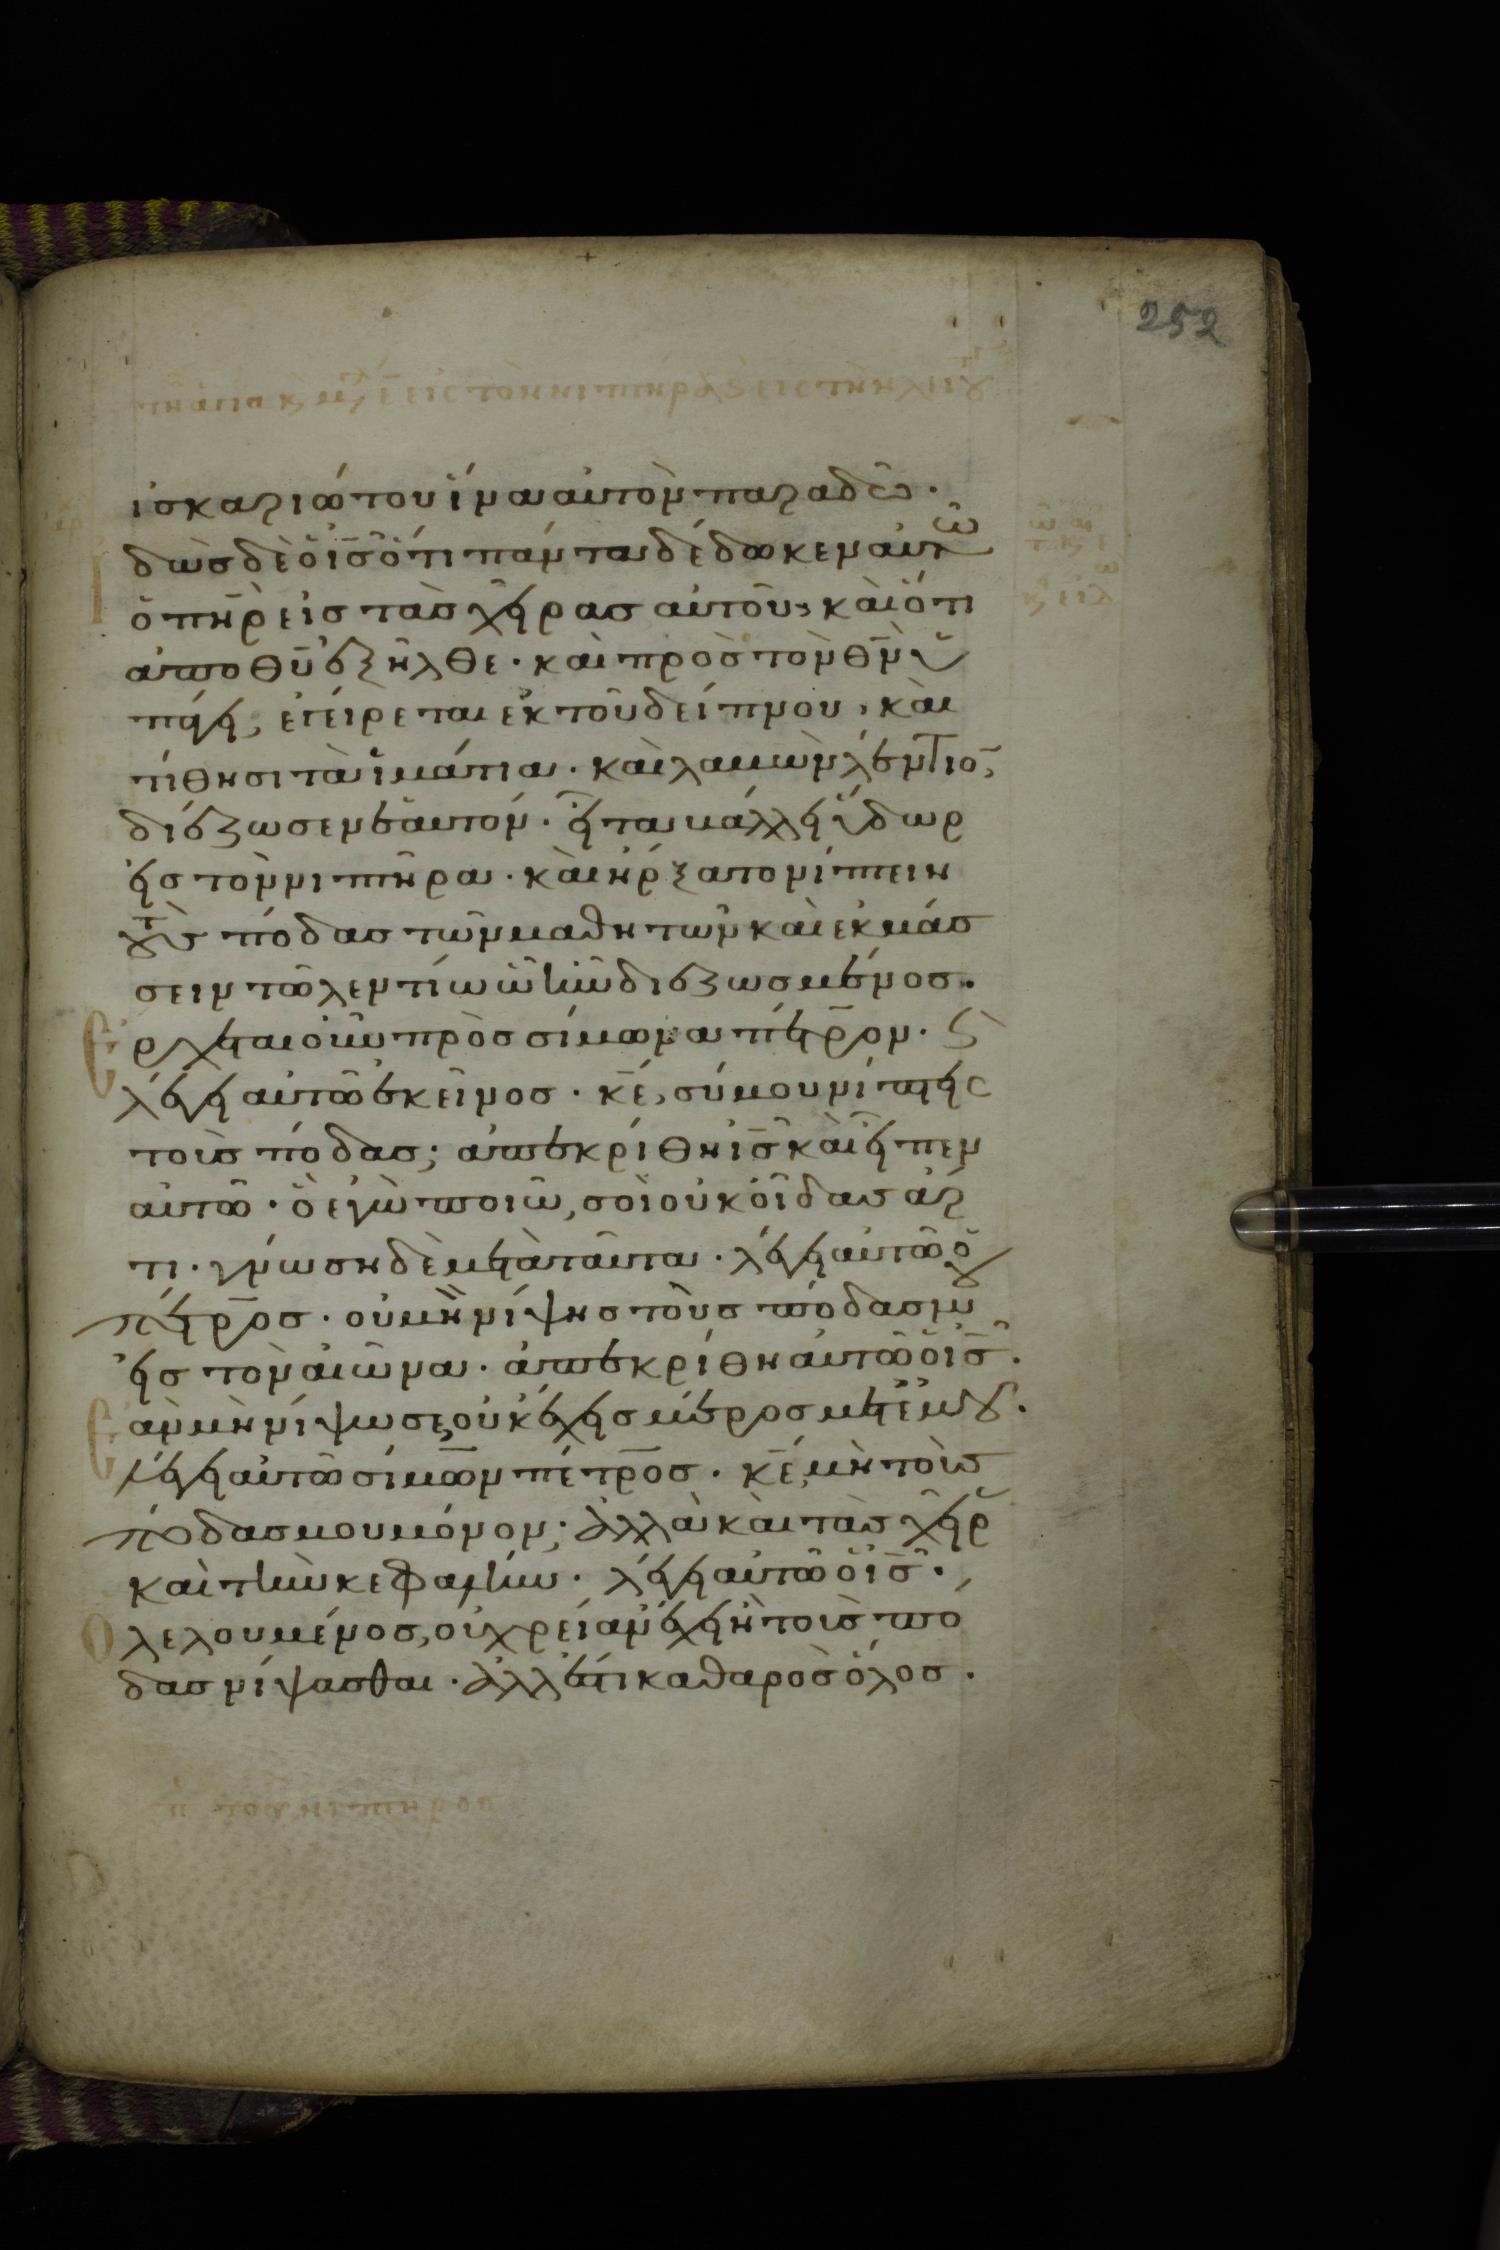 252
ἰσκαριώτου ἵνα αὐτὸν παραδῶ·
δὼσ δὲ ὁ ισ ὅτι πάντα δέδωκεν αὐτῶ
ὁ πηρ εἰσ τὰσ χείρασ αὐτοῦ, καὶ ὅτι
ἀπο θυ ἐξῆλθε· καὶ πρὸσ τὸν θν ὑ
πάγει, ἐγείρεται ἐκ τοῦ δείπνου, καὶ
τίθησι τὰ ἱμάτια· καὶ λαβὼν λέντιον,
διέζωσεν ἑαυτόν· εἶτα βάλλει ὕδωρ
εἰσ τὸν νιπτῆρα· καὶ ἠρξατο νίπτειν
τοὺσ πόδασ τῶν μαθητῶν καὶ ἐκμάσ
σειν τῶ λεντίω ὧ ἦν διεζωσμένοσ.
Ερχεται οὖν πρὸσ σίμωνα πέτρον· ϛ
λέγει αὐτῶ ἐκεῖνοσ· κε, σύ μου νίπτεισ
τοὺσ πόδασ; ἀπεκρίθη ισ καὶ εἶπεν
αὐτῶ· ὃ ἐγὼ ποιῶ, σοὶ οὐκ οἶδασ ἄρ
τι· γνώση δὲ μετὰ ταῦτα· λέγει αὐτῶ ὁ
πέτροσ· οὐ μὴ νίψησ τοὺσ πόδασ μου
εἰσ τὸν αἰῶνα· ἀπεκρίθη αὐτῶ ὁ ισ·
ἐὰν μὴ νίψω σε, οὐκ ἔχεισ μέροσ μετ ἐμοῦ.
λέγει αὐτῶ σίμων πέτροσ· κε, μὴ τοὺσ
πόδασ μου μόνον, ἀλλὰ καὶ τὰσ χεῖρ
καὶ τὴν κεφαλήν· λέγει αὐτῶ ὁ ισ·
Ὁ λελουμένοσ, οὐ χρείαν ἔχει ἢ τοὺσ πό
δασ νίψασθαι· ἀλλ ἔστι καθαρὸσ ὅλοσ·